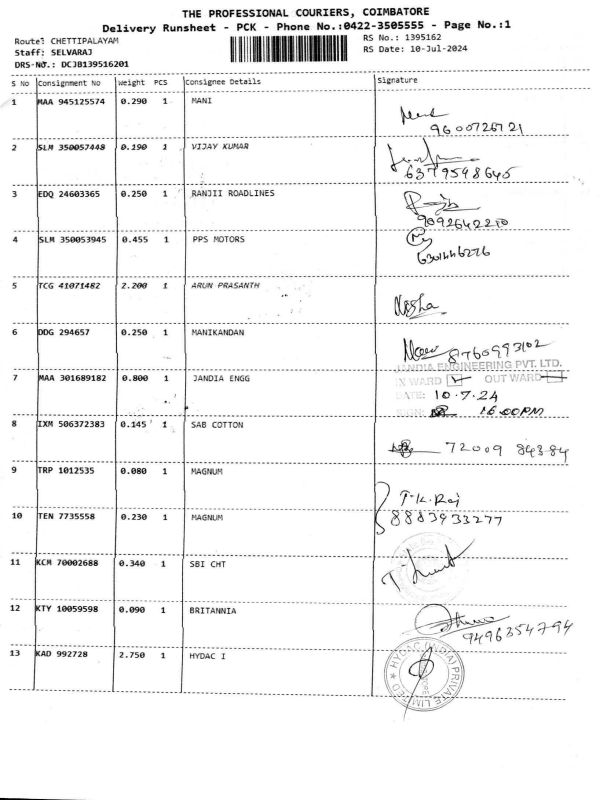 THE PROFESSIONAL COURIERS, COIMBATORE
Delivery Runsheet - PCK - Phone No.:0422-3505555 - Page No.:1
Route: CHETTIPALAYAM RS No.: 1395162
Staff: SELVARAJ RS Date: 10-Jul-2024
DRS-NO.: DCJB139516201
S No Consignment No Weight PCS Consignee Details Signature
1 MAA 945125574 0.290 1 MANI
9600726721
2 SLM 350057448 0.190 1 VIJAY KUMAR
6379598645
3 EDQ 24603365 0.250 1 RANJII ROADLINES
9092642210
4 SLM 350053945 0.455 1 PPS MOTORS
6301446276
5 TCG 41071482 2.200 1 ARUN PRASANTH
Nisha
6 DDG 294657 0.250 1 MANIKANDAN
8760993102
JANDIA ENGINEERING PVT. LTD.
7 MAA 301689182 0.800 1 JANDIA ENGG IN WARD OUT WARD
DATE: 10.7.24
SIGN: 16.00PM
8 IXM 506372383 0.145 1 SAB COTTON
72009 84384
9 TRP 1012535 0.080 1 MAGNUM
T.K. Raj
10 TEN 7735558 0.230 1 MAGNUM
8883933277
11 KCM 70002688 0.340 1 SBI CHT
12 KTY 10059598 0.090 1 BRITANNIA
9496354794
13 KAD 992728 2.750 1 HYDAC I
HYDAC (INDIA) PRIVATE LIMITED